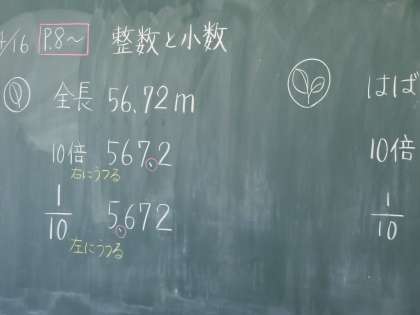 4/16 P.8～ 整数と小数
全長 56.72m
10倍 567.2
右にうつる
1/10 5.672
左にうつる
はば
10倍
1/10